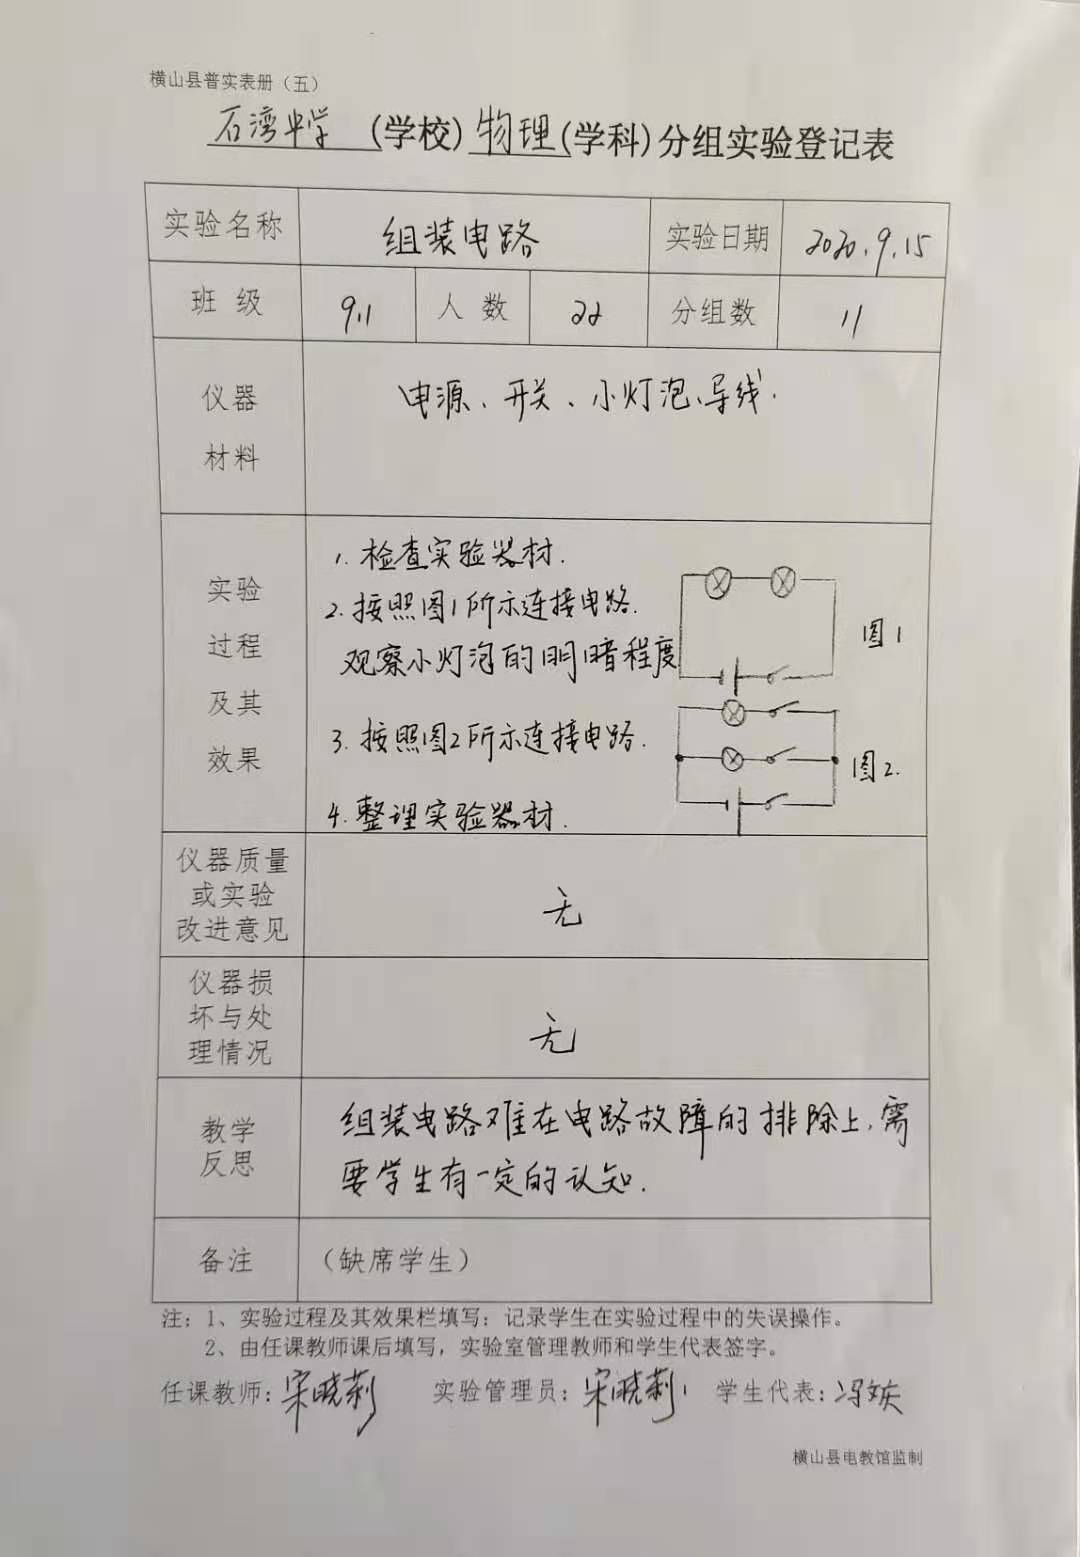 横山县普实表册（五）
石湾中学（学校）物理（学科）分组实验登记表
实验名称 组装电路 实验日期 2020.9.15
班级 9.1 人数 22 分组数 11
仪器材料 电源、开关、小灯泡、导线.
实验过程及其效果
1. 检查实验器材.
2. 按照图1所示连接电路.
观察小灯泡的明暗程度
图1
3. 按照图2所示连接电路.
图2.
4. 整理实验器材.
仪器质量
或实验
改进意见
无
仪器损
坏与处
理情况
无
教学
反思
组装电路难在电路故障的排除上,需
要学生有一定的认知.
备注 （缺席学生）
注：1、实验过程及其效果栏填写：记录学生在实验过程中的失误操作。
2、由任课教师课后填写，实验室管理教师和学生代表签字。
任课教师：宋晓莉 实验管理员：宋晓莉 学生代表：冯
横山县电教馆监制